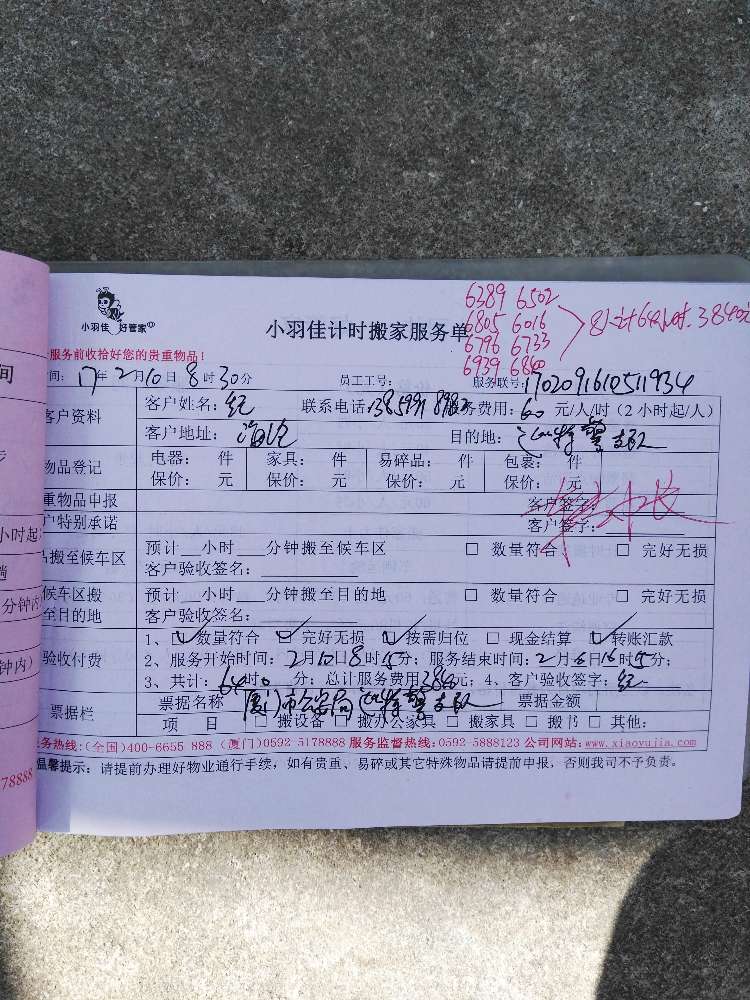 6389 6502
6805 6016
6796 6733
6939 6860
小羽佳 好管家
小羽佳计时搬家服务单
服务前收拾好您的贵重物品！
间：17年2月10日8时30分 员工工号： 服务联号：1702091610511934
客户资料
客户姓名：纪 联系电话： 服务费用：60元/人/时（2小时起/人）
客户地址：海沧 目的地：特警支队
物品登记
电器： 件 家具： 件 易碎品： 件 包裹： 件
保价： 元 保价： 元 保价： 元 保价： 元
重物品申报 客户签字：
户特别承诺 客户签字：
搬至候车区
预计__小时___分钟搬至候车区 □ 数量符合 □ 完好无损
客户验收签名：
候车区搬至目的地
预计__小时___分钟搬至目的地 □ 数量符合 □ 完好无损
客户验收签名：
验收付费
1、☑数量符合 ☑完好无损 ☑按需归位 □ 现金结算 ☑转账汇款
2、服务开始时间：2月10日8时15分；服务结束时间：2月 日16时15分；
3、共计：64时0分；总计服务费用3840元；4、客户验收签字：纪
票据栏
票据名称 厦门市公安局 特警支队 票据金额
项 目 □ 搬设备 □ 搬办公家具 □ 搬家具 □ 搬书 □ 其他：
务热线：(全国)400-6655 888 (厦门)0592 5178888 服务监督热线：0592-5888123 公司网站：www.xiaoyujia.com
温馨提示：请提前办理好物业通行手续，如有贵重、易碎或其它特殊物品请提前申报，否则我司不予负责。
间
小时起
分钟内
钟内）
78888